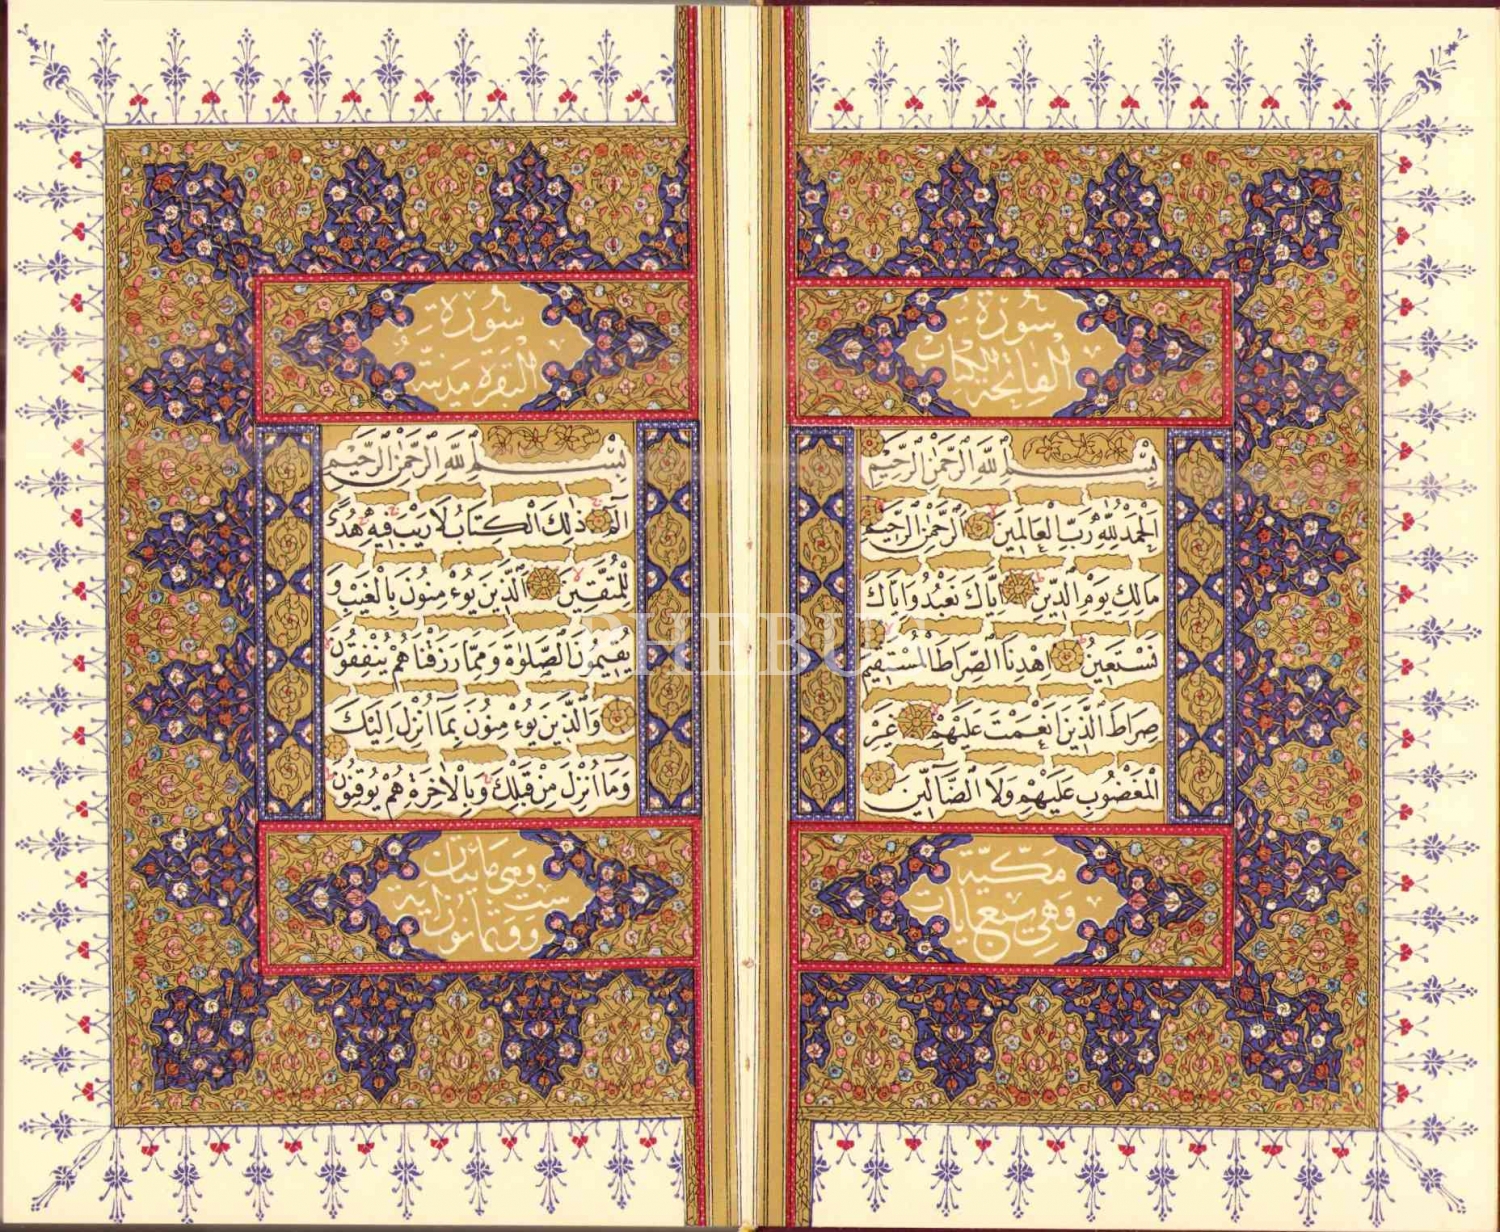 سُورَةُ
الْفَاتِحَةِ الْكِتَابِ
بِسْمِ اللّٰهِ الرَّحْمٰنِ الرَّحِيمِ
اَلْحَمْدُ لِلّٰهِ رَبِّ الْعَالَمِينَ اَلرَّحْمٰنِ الرَّحِيمِ
مَالِكِ يَوْمِ الدِّينِ اِيَّاكَ نَعْبُدُ وَاِيَّاكَ
نَسْتَعِينُ اِهْدِنَا الصِّرَاطَ الْمُسْتَقِيمَ
صِرَاطَ الَّذِينَ اَنْعَمْتَ عَلَيْهِمْ غَيْرِ
الْمَغْضُوبِ عَلَيْهِمْ وَلَا الضَّالِّينَ
مَكِّيَّةٌ
وَهِيَ سَبْعُ اٰيَاتٍ
سُورَةُ
الْبَقَرَةِ مَدَنِيَّةٌ
بِسْمِ اللّٰهِ الرَّحْمٰنِ الرَّحِيمِ
الٓمٓ ذٰلِكَ الْكِتَابُ لَا رَيْبَ فِيهِ هُدًى
لِلْمُتَّقِينَ اَلَّذِينَ يُؤْمِنُونَ بِالْغَيْبِ وَ
يُقِيمُونَ الصَّلٰوةَ وَمِمَّا رَزَقْنَاهُمْ يُنْفِقُونَ
وَالَّذِينَ يُؤْمِنُونَ بِمَٓا اُنْزِلَ اِلَيْكَ
وَمَٓا اُنْزِلَ مِنْ قَبْلِكَ وَبِالْاٰخِرَةِ هُمْ يُوقِنُونَ
وَهِيَ مِائَتَانِ
وَسِتٌّ
وَثَمَانُونَ اٰيَة
PHEBUS